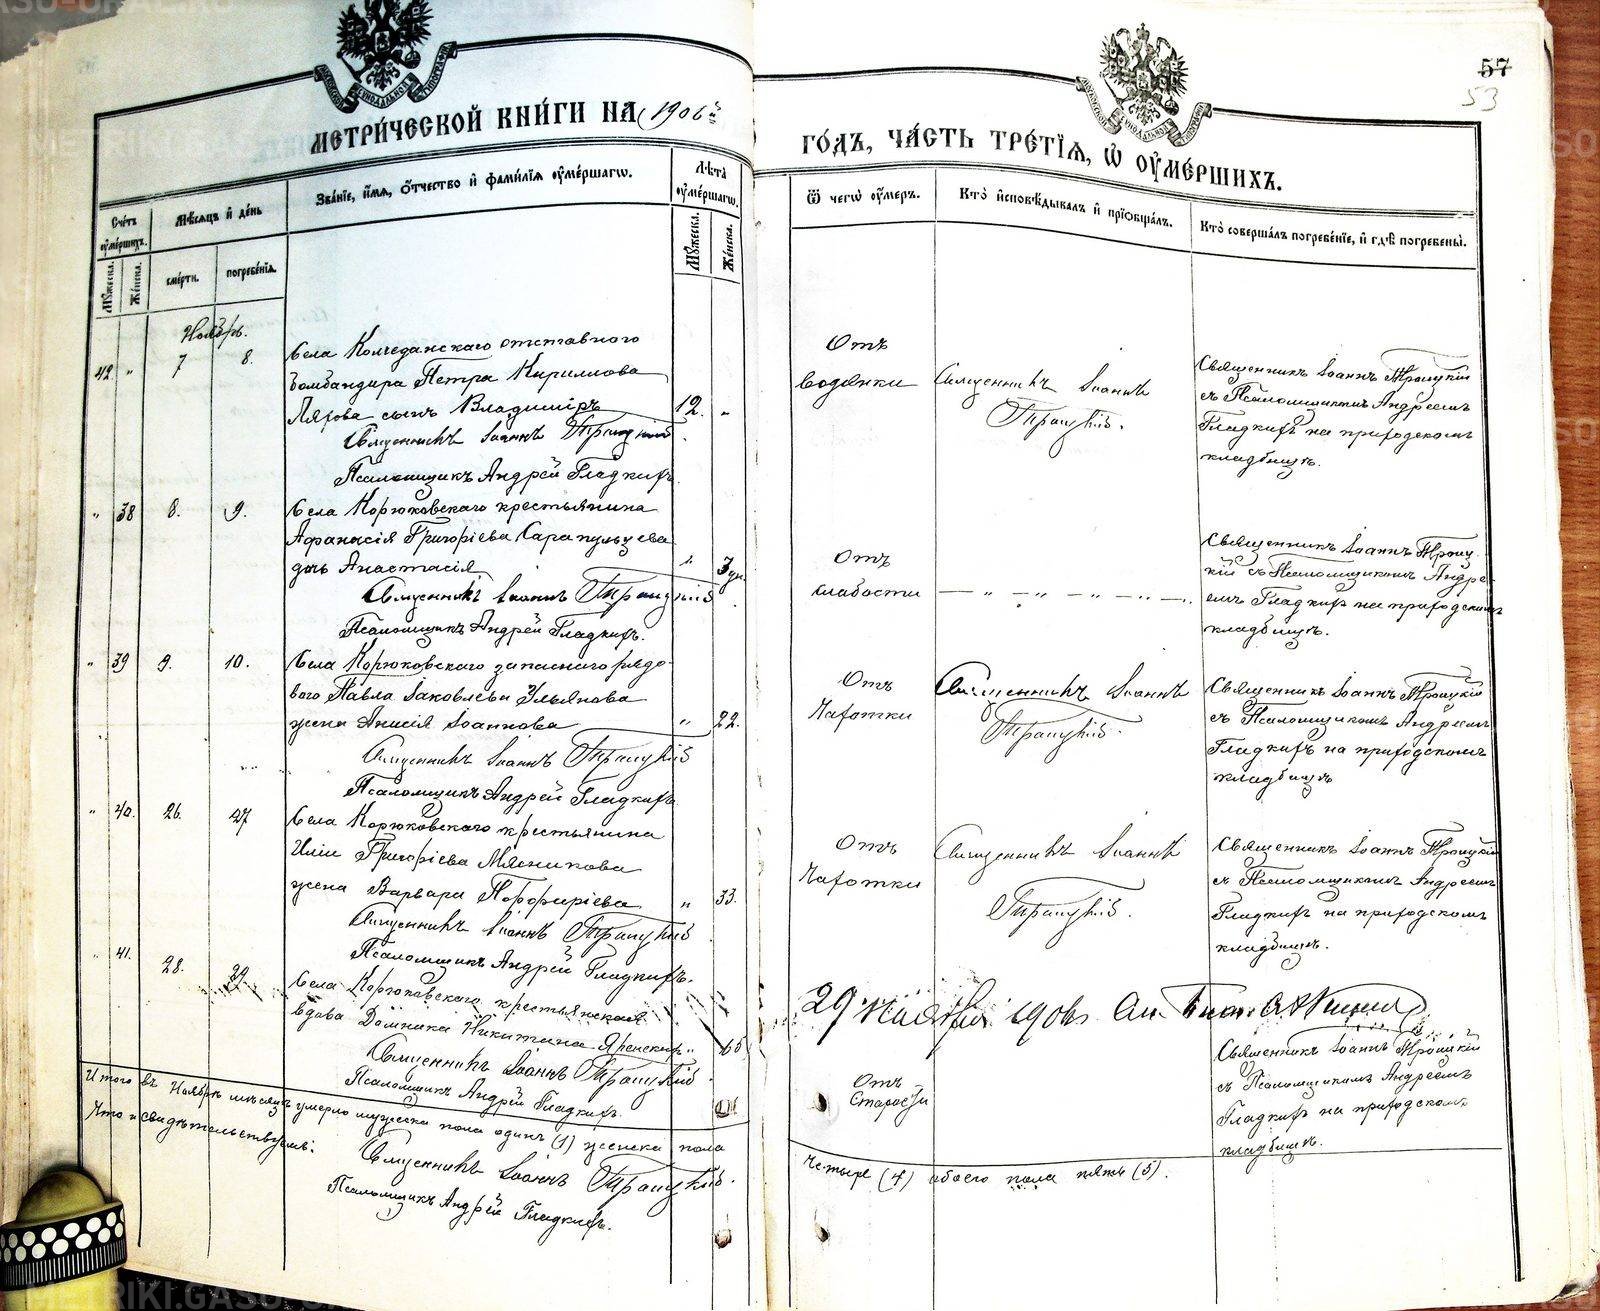 МЕТРИ́ЧЕСКОЙ КНИ́ГИ НА 1906й
Счетъ оумершихъ.
Мѣсяцъ и день
Званіе, имя, отчество и фамилія оумершагѡ.
Лѣта оумершагѡ.
Мужеска.
Женска.
смерти.
погребенія.
Мужеска.
Женска.
Ноябрь.
42 " 7 8. Села Колчеданскаго отставного
бомбандира Петра Кириллова
Лярова сынъ Владиміръ 12. "
Священникъ Іоаннъ Троицкій
Псаломщикъ Андрей Гладкихъ
" 38 8. 9. Села Корюковскаго крестьянина
Афанасія Григоріева Сарапульцева
дочь Анастасія " 3
Священникъ Іоаннъ Троицкій
Псаломщикъ Андрей Гладкихъ.
" 39 9. 10. Села Корюковскаго запаснаго рядо-
вого Павла Іаковлева Ульянова
жена Анисія Іоаннова " 22.
Священникъ Іоаннъ Троицкій
Псаломщикъ Андрей Гладкихъ
" 40. 26. 27 Села Корюковскаго крестьянина
Иліи Григоріева Мясникова
жена Варвара Порфиріева " 33.
Священникъ Іоаннъ Троицкій
Псаломщикъ Андрей Гладкихъ.
" 41. 28. 29. Села Корюковскаго крестьянская
вдова Домника Никитина " 65
Священникъ Іоаннъ Троицкій
Псаломщикъ Андрей Гладкихъ.
Итого въ Ноябрѣ мѣсяцѣ умерло мужеска пола одинъ (1) женска пола
Что и свидѣтельствуемъ:
Священникъ Іоаннъ Троицкій.
Псаломщикъ Андрей Гладкихъ.
57
53
ГО́ДЪ, ЧА́СТЬ ТРЕ́ТІѦ, Ѡ ОУМЕ́РШИХЪ.
Ѿ чегѡ оумеръ.
Кто исповѣдывалъ и пріобщалъ.
Кто совершалъ погребеніе, и гдѣ погребены.
Отъ
водянки
Священникъ Іоаннъ
Троицкій.
Священникъ Іоаннъ Троицкій
съ Псаломщикомъ Андреемъ
Гладкихъ на приходскомъ
кладбищѣ.
Отъ
слабости
— " — " — " — " —
Священникъ Іоаннъ Троиц-
кій съ Псаломщикомъ Андре-
емъ Гладкихъ на приходскомъ
кладбищѣ.
Отъ
Чахотки
Священникъ Іоаннъ
Троицкій.
Священникъ Іоаннъ Троицкій
съ Псаломщикомъ Андреемъ
Гладкихъ на приходскомъ
кладбищѣ
Отъ
Чахотки
Священникъ Іоаннъ
Троицкій.
Священникъ Іоаннъ Троицкій
съ Псаломщикомъ Андреемъ
Гладкихъ на приходскомъ
кладбищѣ.
29 Ноября 1906
Отъ
Старости
Священникъ Іоаннъ Троицкій
съ Псаломщикомъ Андреемъ
Гладкихъ на приходскомъ
кладбищѣ.
Четыре (4) обоего пола пять (5).
METRIKI.GASO-URAL.RU